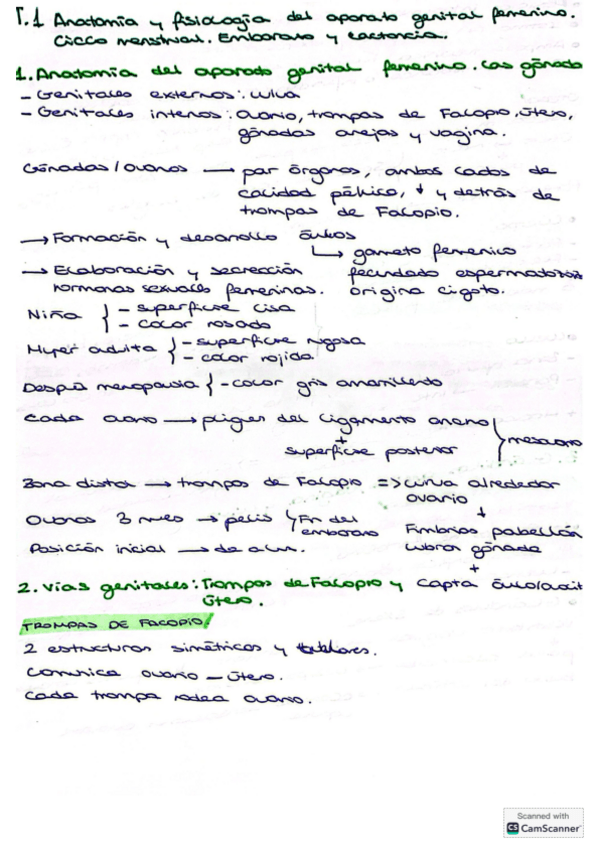 T.1 Anatomía y fisiología del aparato genital femenino.
Ciclo menstrual. Embarazo y lactancia.
1. Anatomía del aparato genital femenino. Las gónada
- Genitales externos: vulva
- Genitales internos: Ovario, trompas de Falopio, útero,
gónadas anejas y vagina.
Gónadas/ovarios → par órganos, ambos lados de
calidad pélvica, ↓ y detrás de
trompas de Falopio.
→ Formación y desarrollo óvulos
↳ gameto femenino
→ Elaboración y secreción fecundado espermatozoo
hormonas sexuales femeninas. origina cigoto.
Niña { - superficie lisa
- color rosado
Mujer adulta { - superficie rugosa
- color rojida
Después menopausia { - color gris amarillento
Cada ovario → pliegues del ligamento ancho
+
superficie posterior } mesovario
Zona distal → trompas de Falopio => curva alrededor
ovario
↓
Ovarios 3 mes → pelvis } Fin del
embarazo
Fimbrias pabellón
cubren gónada
Posición inicial →
+
2. Vías genitales: Trompas de Falopio y capta óvulo/ovocit
Útero.
TROMPAS DE FALOPIO/
2 estructuras simétricas y tubulares.
Comunica ovario - útero.
Cada trompa rodea ovario.
Scanned with
CS CamScanner